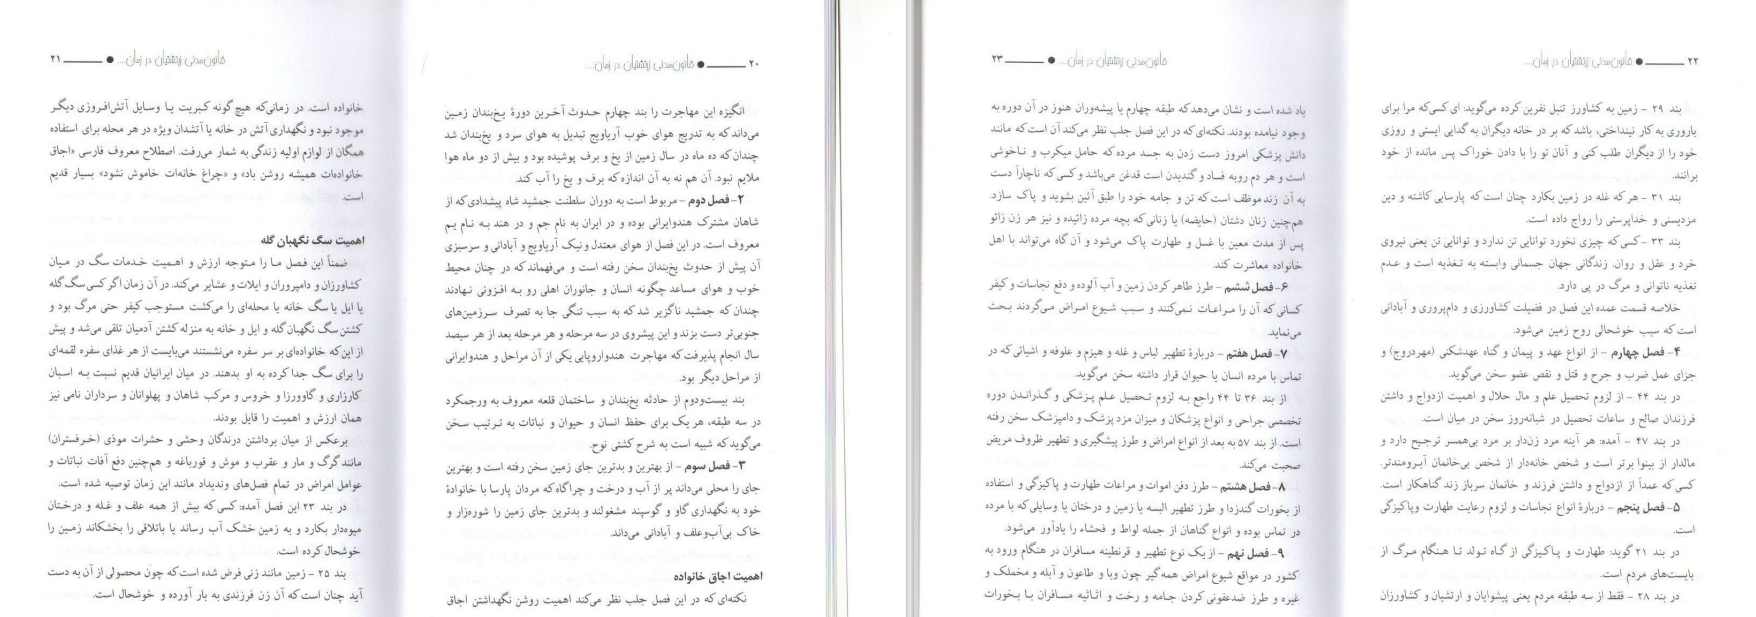 ۲۰ ـــــــ ● قانون مدنی زرتشتیان در زمان...
انگیزه این مهاجرت را بند چهارم حدوث آخرین دورهٔ یخ‌بندان زمین
می‌داند که به تدریج هوای خوب آریاویج تبدیل به هوای سرد و یخ‌بندان شد
چندان‌که ده ماه در سال زمین از یخ و برف پوشیده بود و بیش از دو ماه هوا
ملایم نبود. آن هم نه به آن اندازه که برف و یخ را آب کند.
۲- فصل دوم - مربوط است به دوران سلطنت جمشید شاه پیشدادی که از
شاهان مشترک هندوایرانی بوده و در ایران به نام جم و در هند به نام یم
معروف است. در این فصل از هوای معتدل و نیک آریاویج و آبادانی و سرسبزی
آن پیش از حدوث یخ‌بندان سخن رفته است و می‌فهماند که در چنان محیط
خوب و هوای مساعد چگونه انسان و جانوران اهلی رو به افزونی نهادند
چندان که جمشید ناگزیر شد که به سبب تنگی جا به تصرف سرزمین‌های
جنوبی‌تر دست بزند و این پیشروی در سه مرحله و هر مرحله بعد از هر سیصد
سال انجام پذیرفت که مهاجرت هندواروپایی یکی از آن مراحل و هندوایرانی
از مراحل دیگر بود.
بند بیست‌ودوم از حادثه یخ‌بندان و ساختمان قلعه معروف به ورجمکرد
در سه طبقه، هر یک برای حفظ انسان و حیوان و نباتات به ترتیب سخن
می‌گوید که شبیه است به شرح کشتی نوح.
۳- فصل سوم - از بهترین و بدترین جای زمین سخن رفته است و بهترین
جای را محلی می‌داند پر از آب و درخت و چراگاه که مردان پارسا با خانوادهٔ
خود به نگهداری گاو و گوسپند مشغولند و بدترین جای زمین را شوره‌زار و
خاک بی‌آب‌وعلف و آبادانی می‌داند.
اهمیت اجاق خانواده
نکته‌ای که در این فصل جلب نظر می‌کند اهمیت روشن نگهداشتن اجاق
قانون مدنی زرتشتیان در زمان... ● ـــــــ ۲۱
خانواده است. در زمانی‌که هیچ‌گونه کبریت یا وسایل آتش‌افروزی دیگر
موجود نبود و نگهداری آتش در خانه یا آتشدان ویژه در هر محله برای استفاده
همگان از لوازم اولیه زندگی به شمار می‌رفت. اصطلاح معروف فارسی «اجاق
خانواده‌ات همیشه روشن باد» و «چراغ خانه‌ات خاموش نشود» بسیار قدیم
است.
اهمیت سگ نگهبان گله
ضمناً این فصل ما را متوجه ارزش و اهمیت خدمات سگ در میان
کشاورزان و دامپروران و ایلات و عشایر می‌کند. در آن زمان اگر کسی سگ گله
یا ایل یا سگ خانه یا محله‌ای را می‌کشت مستوجب کیفر حتی مرگ بود و
کشتن سگ نگهبان گله و ایل و خانه به منزله کشتن آدمیان تلقی می‌شد و پیش
از این‌که خانواده‌ای بر سر سفره می‌نشستند می‌بایست از هر غذای سفره لقمه‌ای
را برای سگ جدا کرده به او بدهند. در میان ایرانیان قدیم نسبت به اسبان
کارزاری و گاوورزا و خروس و مرکب شاهان و پهلوانان و سرداران نامی نیز
همان ارزش و اهمیت را قایل بودند.
برعکس از میان برداشتن درندگان وحشی و حشرات موذی (خرفستران)
مانند گرگ و مار و عقرب و موش و قورباغه و هم‌چنین دفع آفات نباتات و
عوامل امراض در تمام فصل‌های وندیداد مانند این زمان توصیه شده است.
در بند ۲۳ این فصل آمده: کسی که بیش از همه علف و غله و درختان
میوه‌دار بکارد و به زمین خشک آب رساند یا باتلاقی را بخشکاند زمین را
خوشحال کرده است.
بند ۲۵ - زمین مانند زنی فرض شده است که چون محصولی از آن به دست
آید چنان است که آن زن فرزندی به بار آورده و خوشحال است.
۲۲ ـــــــ ● قانون مدنی زرتشتیان در زمان...
بند ۲۹ - زمین به کشاورز تنبل نفرین کرده می‌گوید: ای کسی‌که مرا برای
باروری به کار نینداختی، باشد که بر در خانه دیگران به گدایی ایستی و روزی
خود را از دیگران طلب کنی و آنان تو را با دادن خوراک پس مانده از خود
برانند.
بند ۳۱ - هر که غله در زمین بکارد چنان است که پارسایی کاشته و دین
مزدیسنی و خداپرستی را رواج داده است.
بند ۳۳ - کسی‌که چیزی نخورد توانایی تن ندارد و توانایی تن یعنی نیروی
خرد و عقل و روان. زندگانی جهان جسمانی وابسته به تغذیه است و عدم
تغذیه ناتوانی و مرگ در پی دارد.
خلاصه قسمت عمده این فصل در فضیلت کشاورزی و دام‌پروری و آبادانی
است که سبب خوشحالی روح زمین می‌شود.
۴- فصل چهارم - از انواع عهد و پیمان و گناه عهدشکنی (مهردروج) و
جزای عمل ضرب و جرح و قتل و نقص عضو سخن می‌گوید.
در بند ۴۴ - از لزوم تحصیل علم و مال حلال و اهمیت ازدواج و داشتن
فرزندان صالح و ساعات تحصیل در شبانه‌روز سخن در میان است.
در بند ۴۷ - آمده: هر آینه مرد زن‌دار بر مرد بی‌همسر ترجیح دارد و
مالدار از بینوا برتر است و شخص خانه‌دار از شخص بی‌خانمان آبرومندتر.
کسی که عمداً از ازدواج و داشتن فرزند و خانمان سرباز زند گناهکار است.
۵- فصل پنجم - دربارهٔ انواع نجاسات و لزوم رعایت طهارت وپاکیزگی
است.
در بند ۲۱ گوید: طهارت و پاکیزگی از گاه تولد تا هنگام مرگ از
بایست‌های مردم است.
در بند ۲۸ - فقط از سه طبقه مردم یعنی پیشوایان و ارتشیان و کشاورزان
قانون مدنی زرتشتیان در زمان... ● ـــــــ ۲۳
یاد شده است و نشان می‌دهد که طبقه چهارم یا پیشه‌وران هنوز در آن دوره به
وجود نیامده بودند. نکته‌ای که در این فصل جلب نظر می‌کند آن است که مانند
دانش پزشکی امروز دست زدن به جسد مرده که حامل میکرب و ناخوشی
است و هر دم روبه فساد و گندیدن است قدغن می‌باشد و کسی که ناچاراً دست
به آن زند موظف است که تن و جامه خود را طبق آئین بشوید و پاک سازد.
هم‌چنین زنان دشتان (حایضه) یا زنانی که بچه مرده زائیده و نیز هر زن زائو
پس از مدت معین با غسل و طهارت پاک می‌شود و آن گاه می‌تواند با اهل
خانواده معاشرت کند.
۶- فصل ششم - طرز طاهر کردن زمین و آب آلوده و دفع نجاسات و کیفر
کسانی که آن را مراعات نمی‌کنند و سبب شیوع امراض می‌گردند بحث
می‌نماید.
۷- فصل هفتم - دربارهٔ تطهیر لباس و غله و هیزم و علوفه و اشیائی که در
تماس با مرده انسان یا حیوان قرار داشته سخن می‌گوید.
از بند ۳۶ تا ۴۴ راجع به لزوم تحصیل علم پزشکی و گذراندن دوره
تخصصی جراحی و انواع پزشکان و میزان مزد پزشک و دامپزشک سخن رفته
است. از بند ۵۷ به بعد از انواع امراض و طرز پیشگیری و تطهیر ظروف مریض
صحبت می‌کند.
۸- فصل هشتم - طرز دفن اموات و مراعات طهارت و پاکیزگی و استفاده
از بخورات گندزدا و طرز تطهیر البسه یا زمین و درختان یا وسایلی که با مرده
در تماس بوده و انواع گناهان از جمله لواط و فحشاء را یادآور می‌شود.
۹- فصل نهم - از یک نوع تطهیر و قرنطینه مسافران در هنگام ورود به
کشور در مواقع شیوع امراض همه‌گیر چون وبا و طاعون و آبله و مخملک و
غیره و طرز ضدعفونی کردن جامه و رخت و اثاثیه مسافران با بخورات